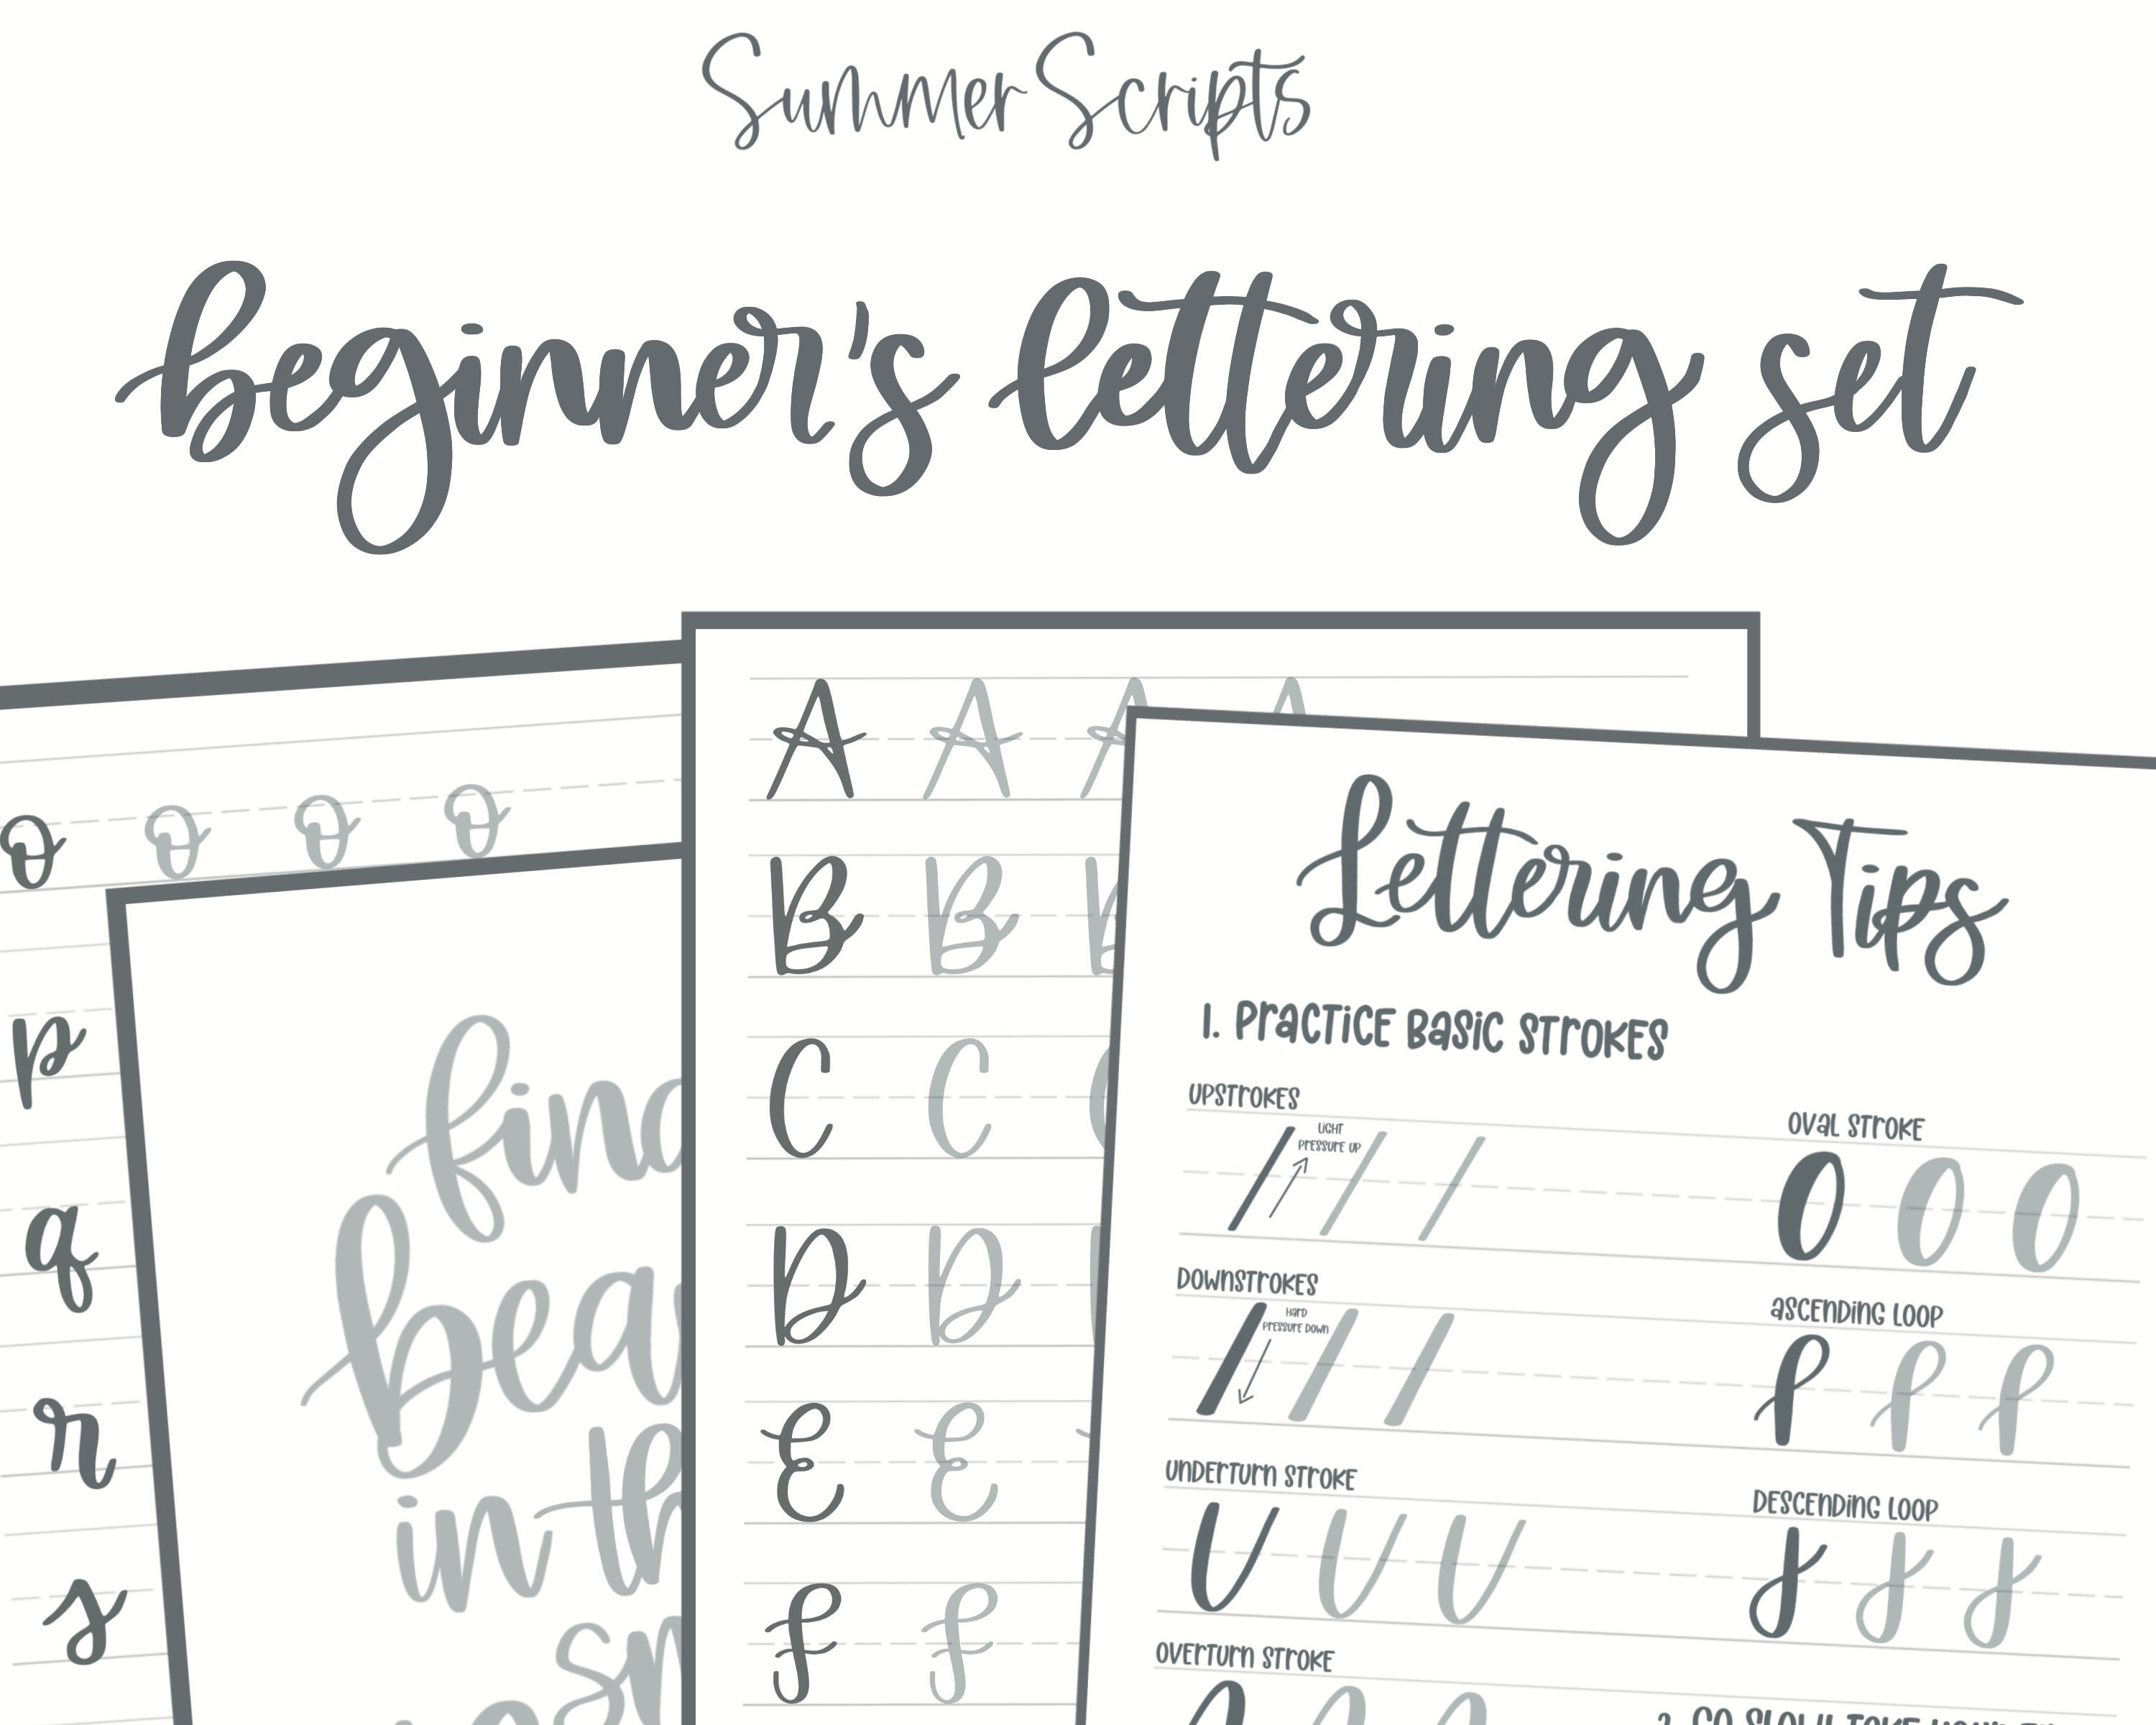 Summer Scripts
beginner's lettering set
o o o o
p
q
r
s
find
in
A A A A
B B B
C C C
D D
E E
F F
Lettering Tips
1. PRACTICE BASIC STROKES
UPSTROKES
LIGHT
PRESSURE UP
OVAL STROKE
DOWNSTROKES
HARD
PRESSURE DOWN
ASCENDING LOOP
UNDERTURN STROKE
DESCENDING LOOP
OVERTURN STROKE
2. GO SLOW! TAKE YOUR